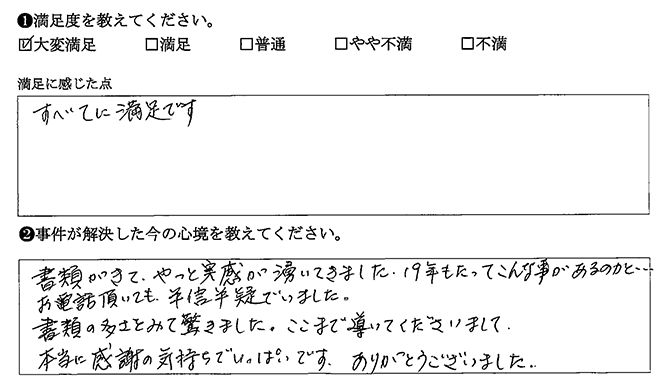 ❶満足度を教えてください。
☑大変満足 □満足 □普通 □やや不満 □不満
満足に感じた点
すべてに満足です
❷事件が解決した今の心境を教えてください。
書類がきて、やっと実感が湧いてきました。19年もたってこんな事があるのかと…
お電話頂いても、半信半疑でいました。
書類の多さをみて驚きました。ここまで導いてくださいまして、
本当に感謝の気持ちでいっぱいです。ありがとうございました。